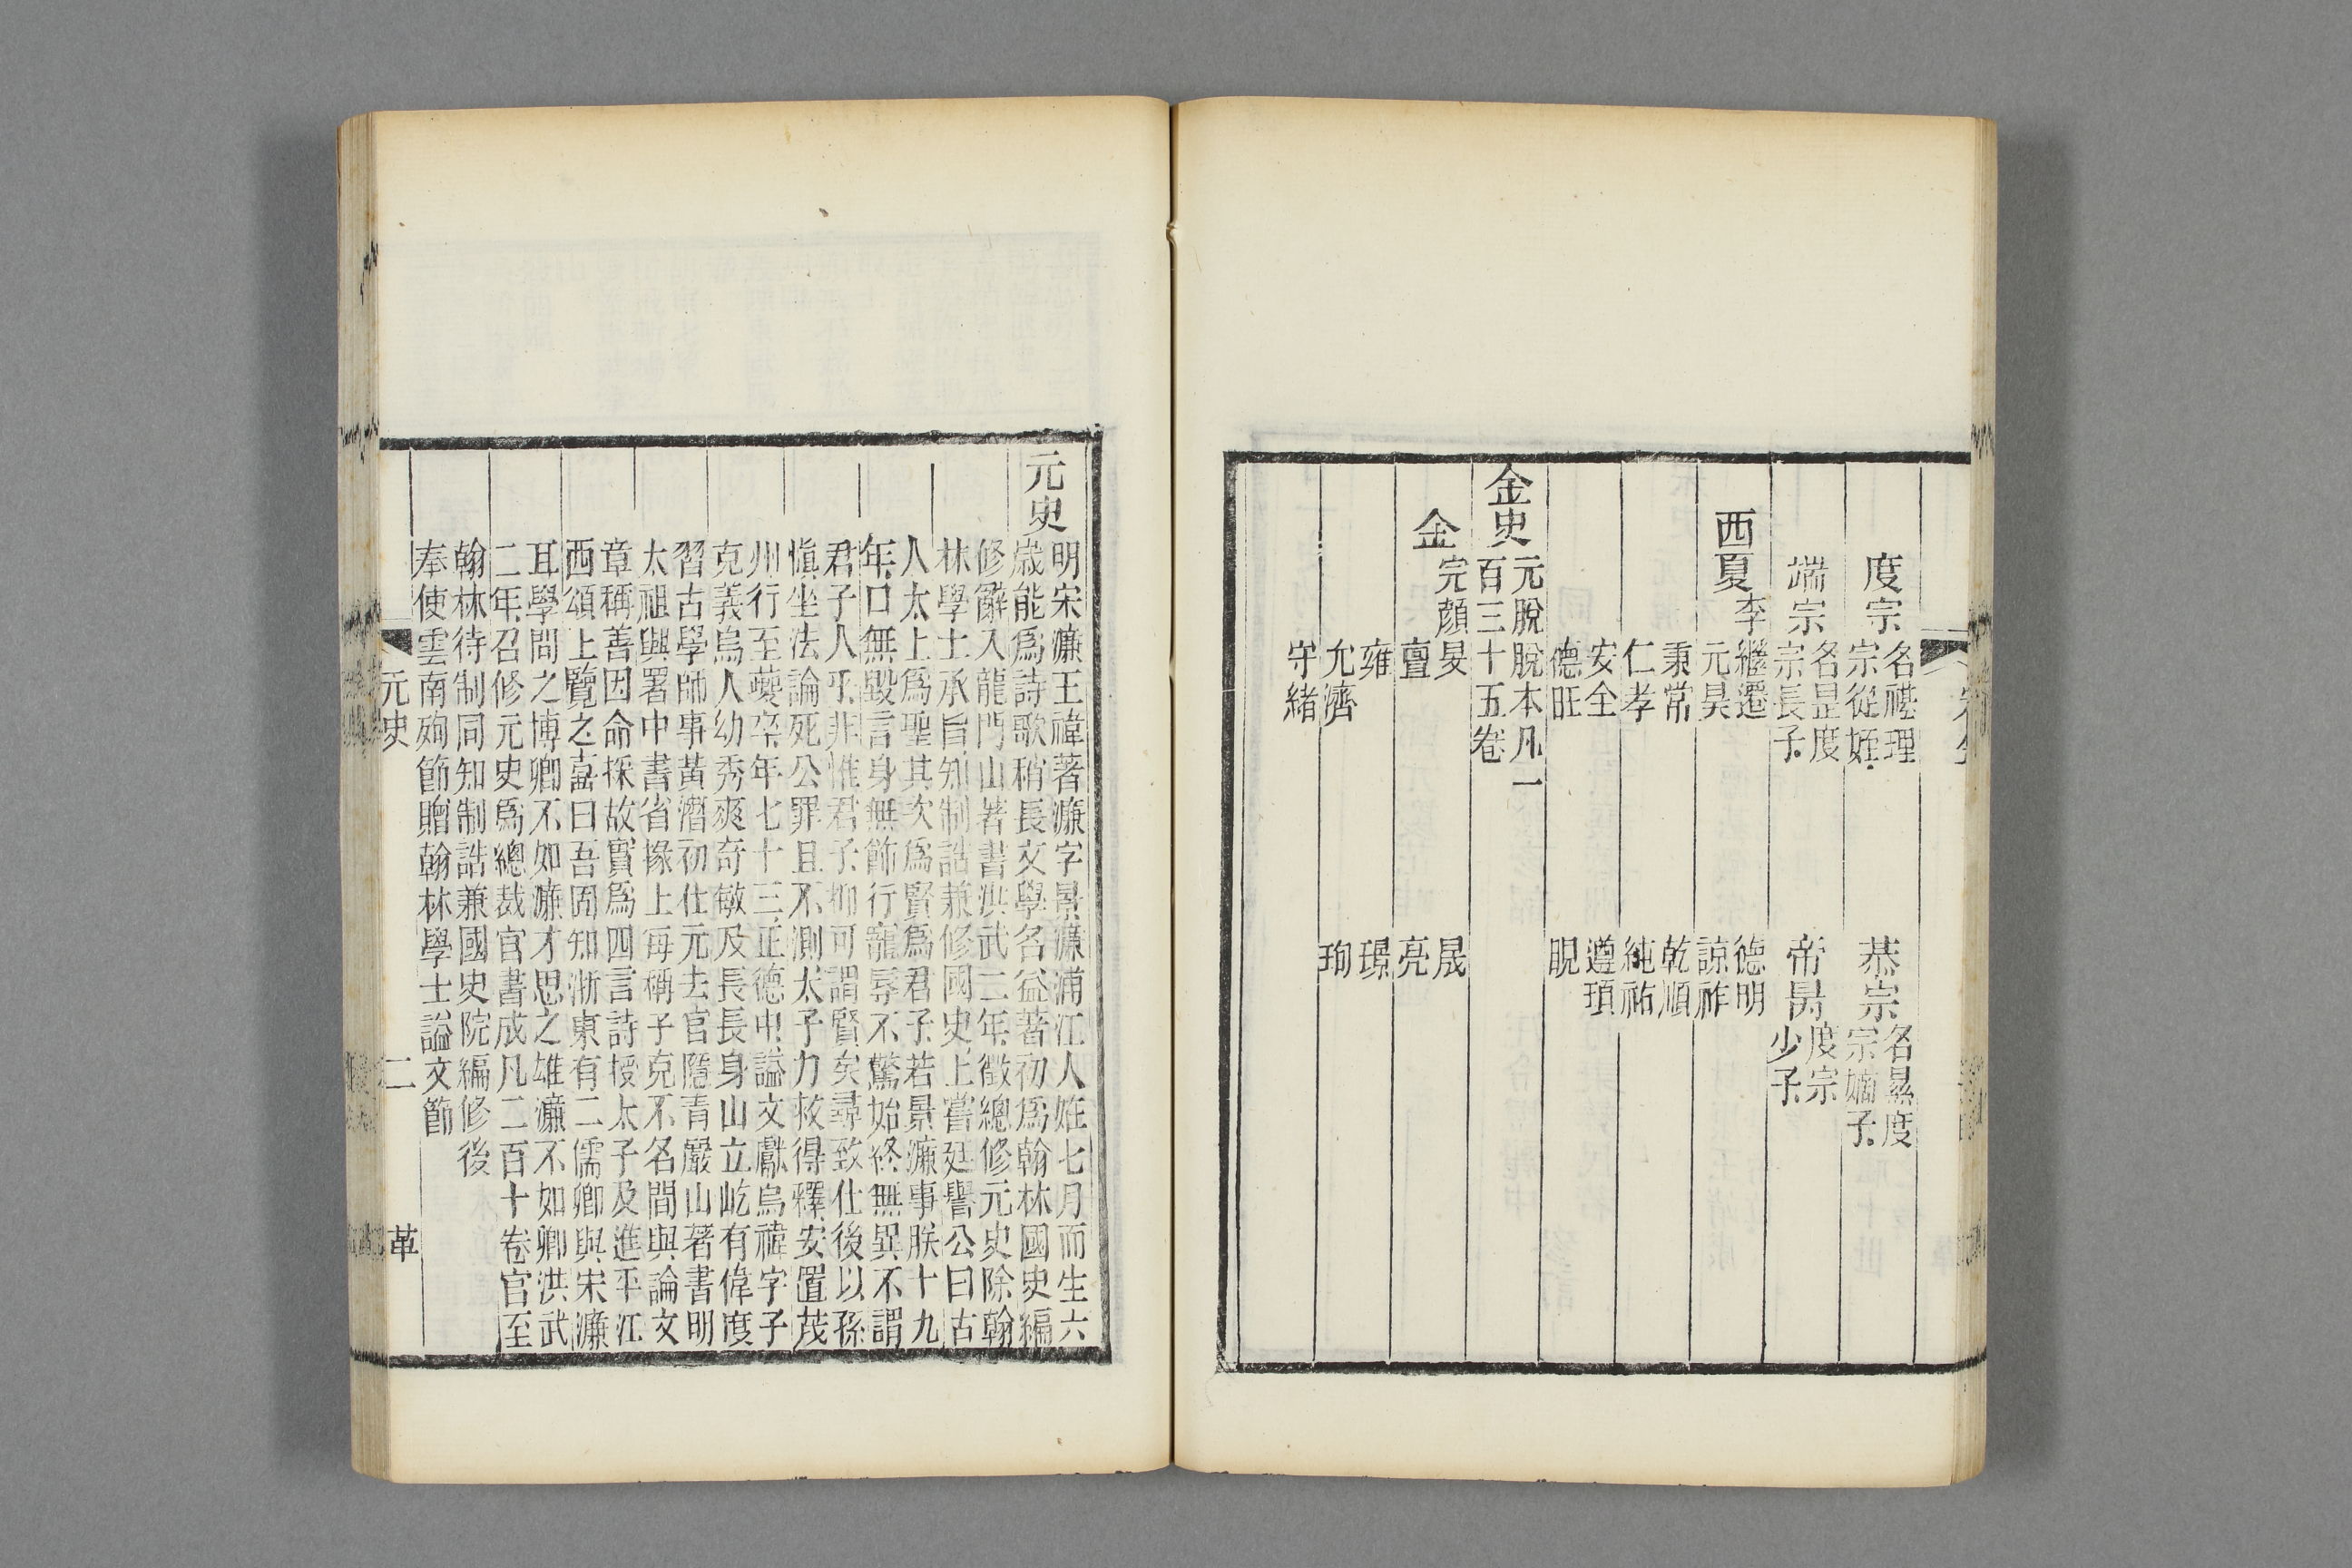 度宗
名禥理
宗從姪
恭宗
名㬎度
宗嫡子
端宗
名昰度
宗長子
帝昺
度宗
少子
西夏
李
繼遷
德明
元昊
諒祚
秉常
乾順
仁孝
純祐
安全
遵頊
德旺
睍
金史
元脫脫本凡一
百三十五卷
金
完顏
旻
晟
亶
亮
雍
璟
允濟
珣
守緒
元史
明宋濂王褘著濂字景濂浦江人姙七月而生六
歲能爲詩歌稍長文學名益著初爲翰林國史編
修辭入龍門山著書洪武二年徵總修元史除翰
林學士承旨知制誥兼修國史上嘗廷譽公曰古
人太上爲聖其次爲賢爲君子若景濂事朕十九
年口無毀言身無飾行寵辱不驚始終無異不謂
君子人乎非惟君子抑可謂賢矣尋致仕後以孫
愼坐法論死公罪且不測太子力救得釋安置茂
州行至夔卒年七十三正德中諡文獻烏褘字子
克義烏人幼秀爽奇敏及長長身山立屹有偉度
習古學師事黃溍初仕元去官隱青巖山著書明
太祖與署中書省掾上每稱子克不名間與論文
章稱善因命採故實爲四言詩授太子及進平江
西頌上覽之喜曰吾固知浙東有二儒卿與宋濂
耳學問之博卿不如濂才思之雄濂不如卿洪武
二年召修元史爲總裁官書成凡二百十卷官至
翰林待制同知制誥兼國史院編修後
奉使雲南殉節贈翰林學士諡文節
元史
二
革